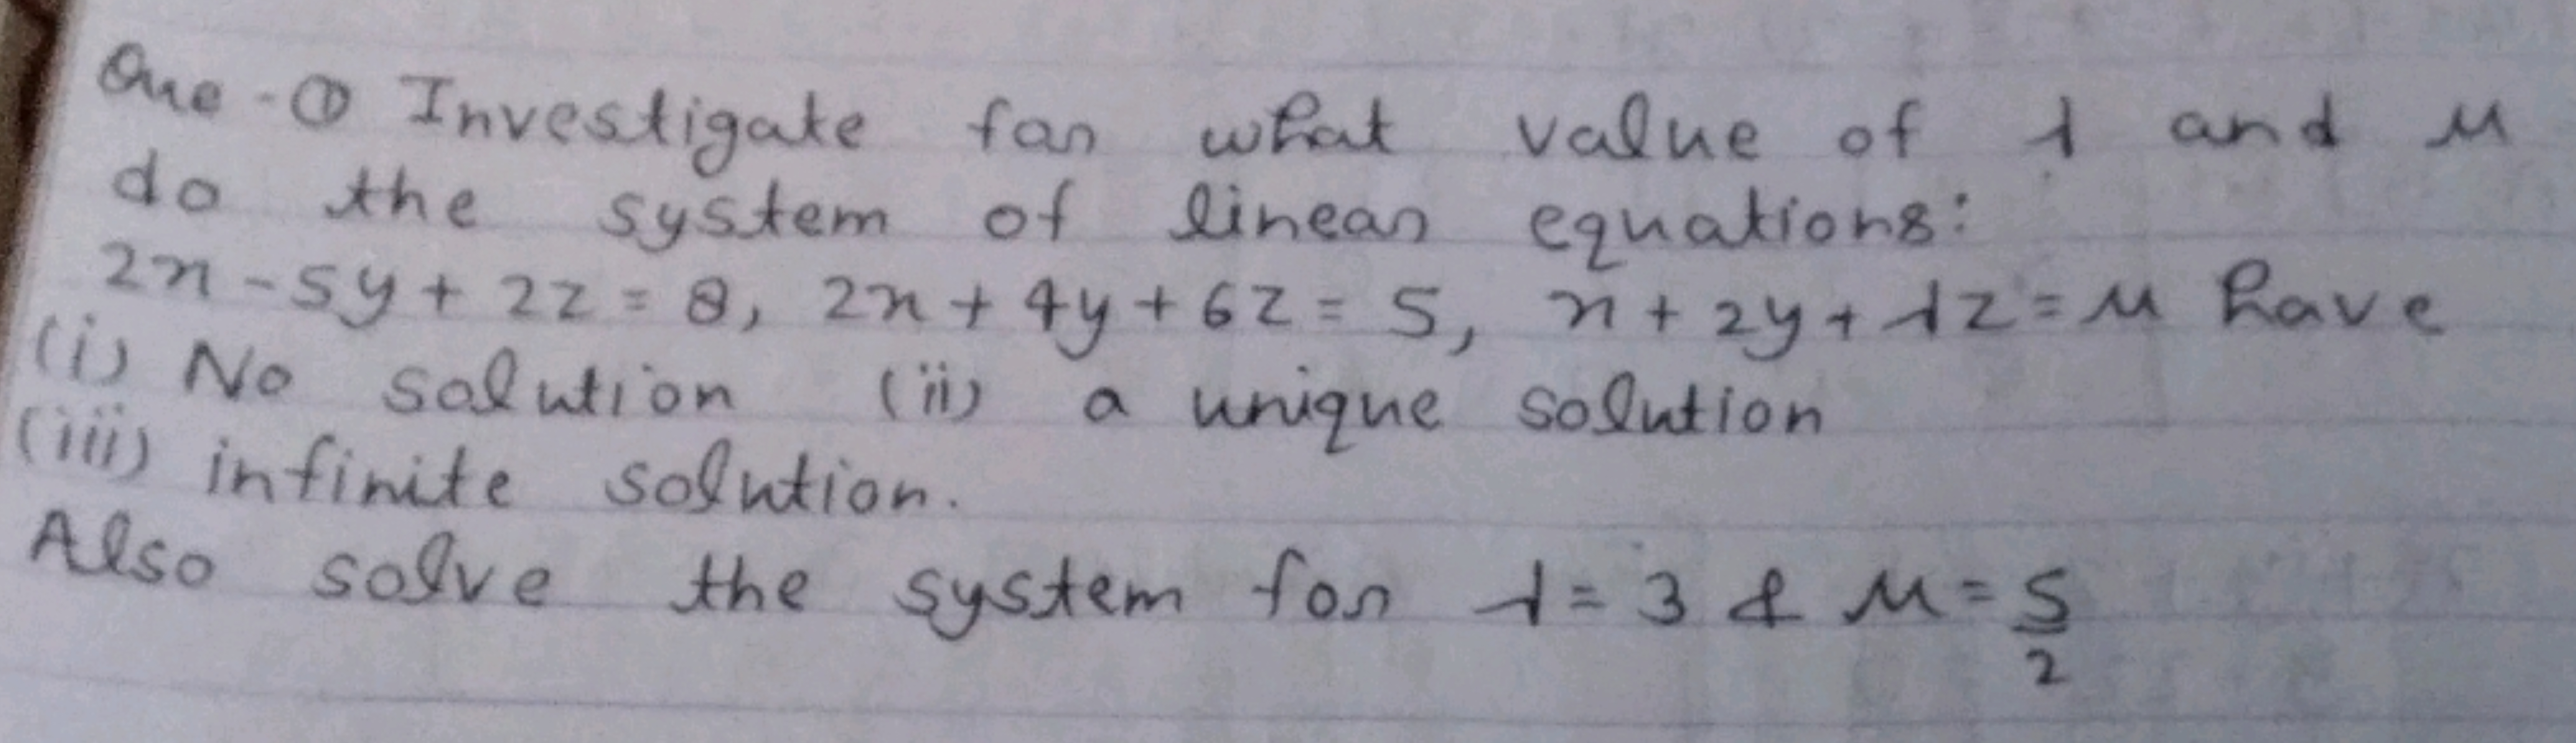 Que-① Investigate for what value of λ and μ
do the system of linear equations:
2x - 5y + 2z = 8, 2x + 4y + 6z = 5, x + 2y + λz = μ have
(i) No solution (ii) a unique solution
(iii) infinite solution.
Also solve the system for λ = 3 & μ = 5/2